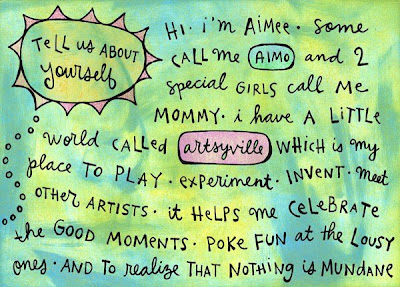 TELL US ABOUT
yourself
Hi · i'm AiMee · some
CALL me AIMO and 2
special GIRLS call Me
MOMMY · i have A LiTTLe
world CALLED artsyville WHICH is my
place TO PLAY · experiment · INVENT · meet
other ARTISTS · it HELPS me CeLeBRATE
the GOOD MOMENTS · POKE FUN at the LOUSY
ones · AND To realize THAT NOTHING is MUNDANE